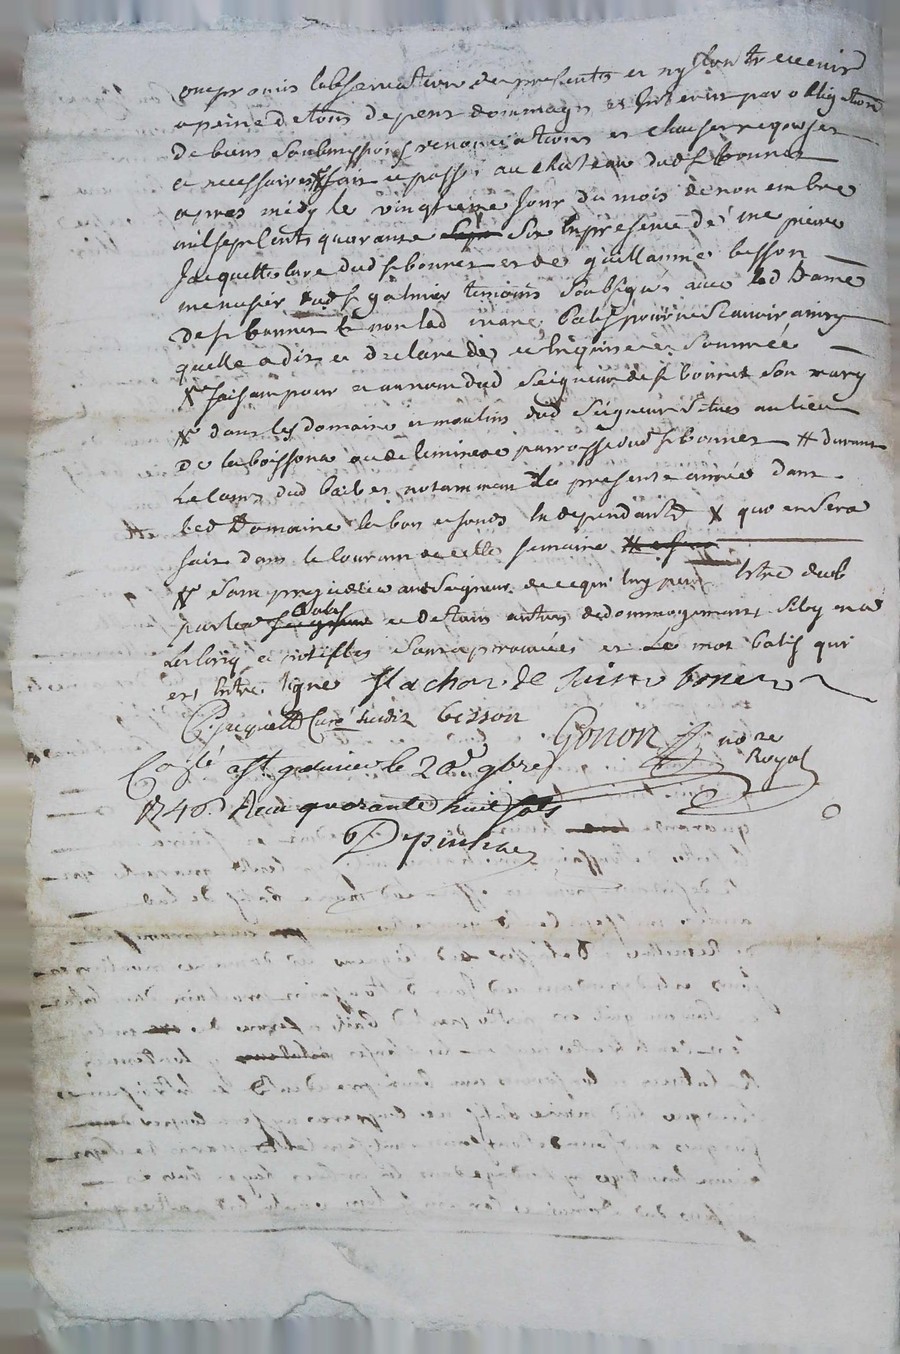 ont promis l'observation des presents et n'y contrevenir
a peine de tous depens dommages et interest par obligation
de biens soubmissions renonciations et clauses requises
et necessaires fait et passé au chateau dud st bonnet
apres midy le vingtieme jour du mois de novembre
mil sept cents quarante six en presence de me pierre
Jaquette cure dud st bonnet et de guillaume besson
menusier dud st galmier temoins soubsignés avec lad dame
de st bonnet et non led marc batif pour ne scavoir ainsy
qu'elle a dit et declare de ce enquise et sommée
faisant pour et au nom dud Seigneur de st bonnet son mary
dans les domaine et moulins dud Seigneur situés au lieu
de la boissone parroisse dud st bonnet durant
le cours dud bail et notamment la presente année dans
led domaine le bois et fonds en dependants que en sera
fait dans le courant de cette semaine
Sans prejudice aud Seigneur de ce qui luy peut estre deub
par led batif et de tous autres dedommagements
et le mot batif qui
est entre ligne Flachat de Saint bonnet
Jaquette curé susdit besson
Gonon no.re
Royal
Conllé a St galmier le 20e 9bre
1746 Recu quarante huit sols
Depinhac